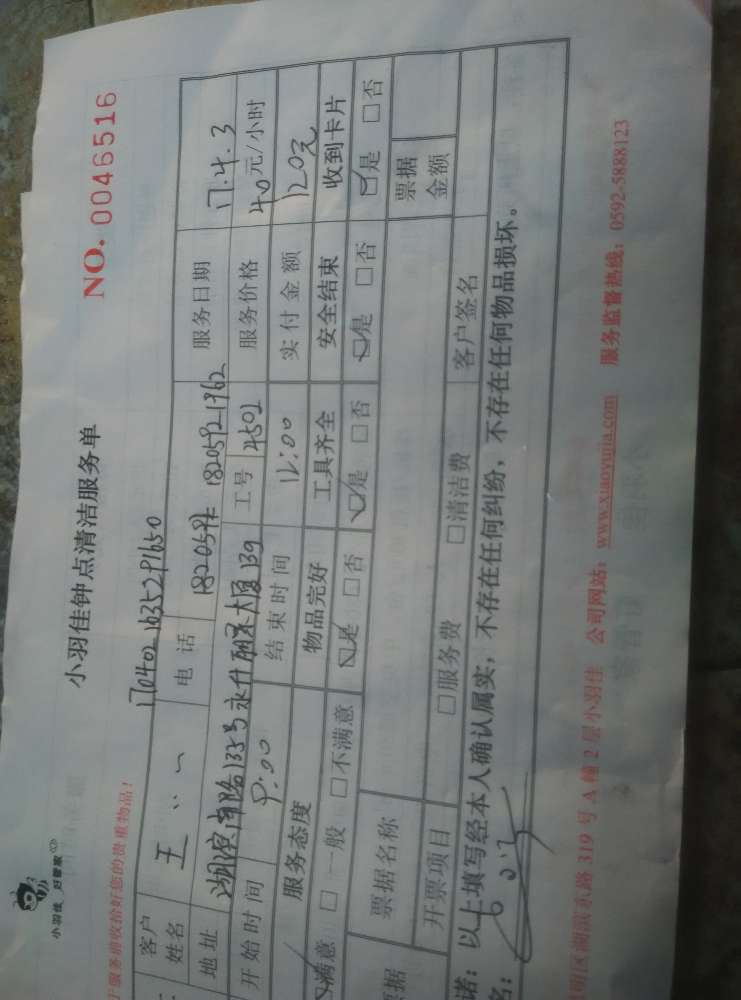 小羽佳 好管家
小羽佳钟点清洁服务单
NO. 0046516
于服务前收拾好您的贵重物品!
客户姓名 王 电话 服务日期 17.4.3
地址 湖滨南路 工号 4502 服务价格 40元/小时
开始时间 9:00 结束时间 12:00 实付金额 120元
服务态度 物品完好 工具齐全 安全结束 收到卡片
满意 □一般 □不满意 是 □否 是 □否 是 □否 是 □否
票据名称 票据金额
票据 开票项目 □服务费 □清洁费 客户签名
诺:以上填写经本人确认属实,不存在任何纠纷,不存在任何物品损坏。
名:
明区湖滨东路 319 号 A 幢 2 层小羽佳 公司网站:www.xiaoyujia.com 服务监督热线:0592-5888123